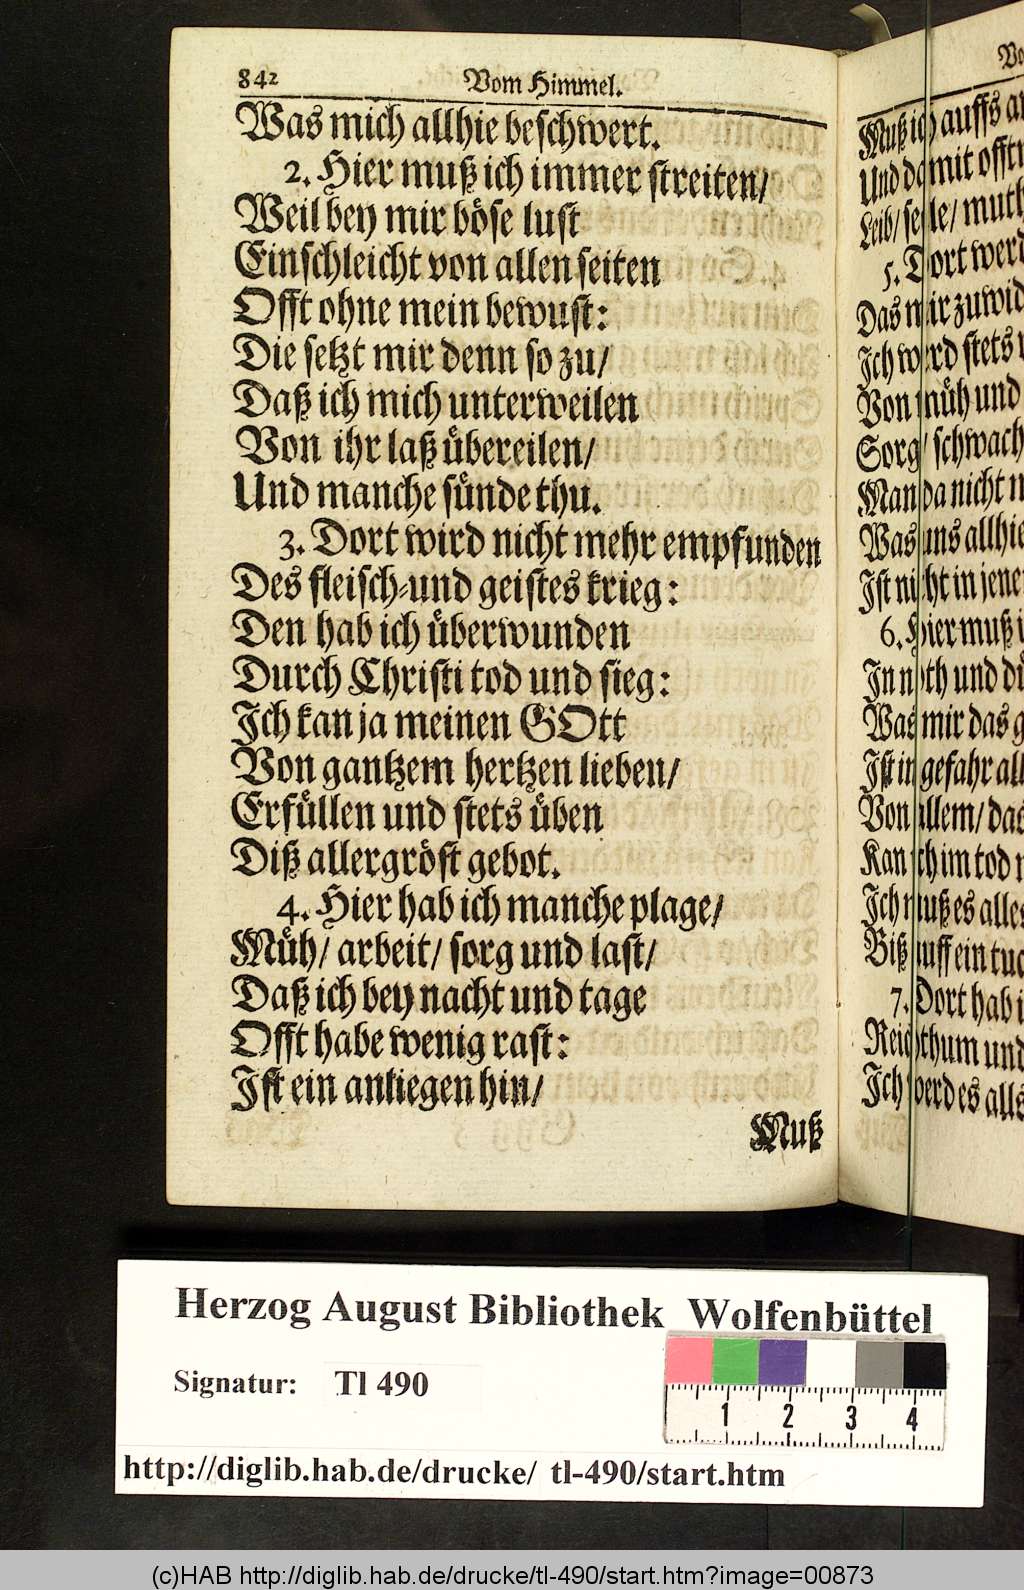 842 Vom Himmel.
Was mich allhie beschwert.
2. Hier muß ich immer streiten/
Weil bey mir böse lust
Einschleicht von allen seiten
Offt ohne mein bewust:
Die setzt mir denn so zu/
Daß ich mich unterweilen
Von ihr laß übereilen/
Und manche sünde thu.
3. Dort wird nicht mehr empfunden
Des fleisch-und geistes krieg:
Den hab ich überwunden
Durch Christi tod und sieg:
Ich kan ja meinen GOtt
Von gantzem hertzen lieben/
Erfüllen und stets üben
Diß allergröst gebot.
4. Hier hab ich manche plage/
Müh/ arbeit/ sorg und last/
Daß ich bey nacht und tage
Offt habe wenig rast:
Ist ein anliegen hin/
Muß
Muß ich auffs
Und damit
Leib/ seele/
5. Dort
Das mir
Ich werd stets
Von müh und
Sorg/
Man da nicht
Was uns allhie
Ist nicht in
6. Hier muß
In noth und
Was mir das
Ist in gefahr
Von allem/
Kan ich im tod
Ich muß es
Biß auff ein
7. Dort hab
Reichthum und
Ich werd es
Herzog August Bibliothek Wolfenbüttel
Signatur: Tl 490
1 2 3 4
http://diglib.hab.de/drucke/ tl-490/start.htm
(c)HAB http://diglib.hab.de/drucke/tl-490/start.htm?image=00873